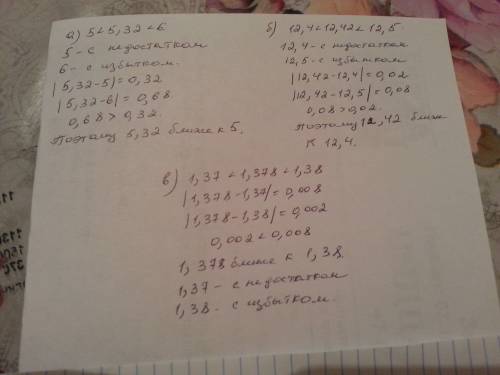 а) 5<5,32<6
5 - с недостатком
6 - с избытком.
|5,32-5|=0,32
|5,32-6|=0,68
0,68>0,32.
Поэтому 5,32 ближе к 5.
б) 12,4<12,42<12,5.
12,4 - с недостатком
12,5 - с избытком
|12,42-12,4|=0,02
|12,42-12,5|=0,08
0,08>0,02.
Поэтому 12,42 ближе
к 12,4.
в) 1,37<1,378<1,38
|1,378-1,37|=0,008
|1,378-1,38|=0,002
0,002<0,008
1,378 ближе к 1,38.
1,37 - с недостатком
1,38 - с избытком.